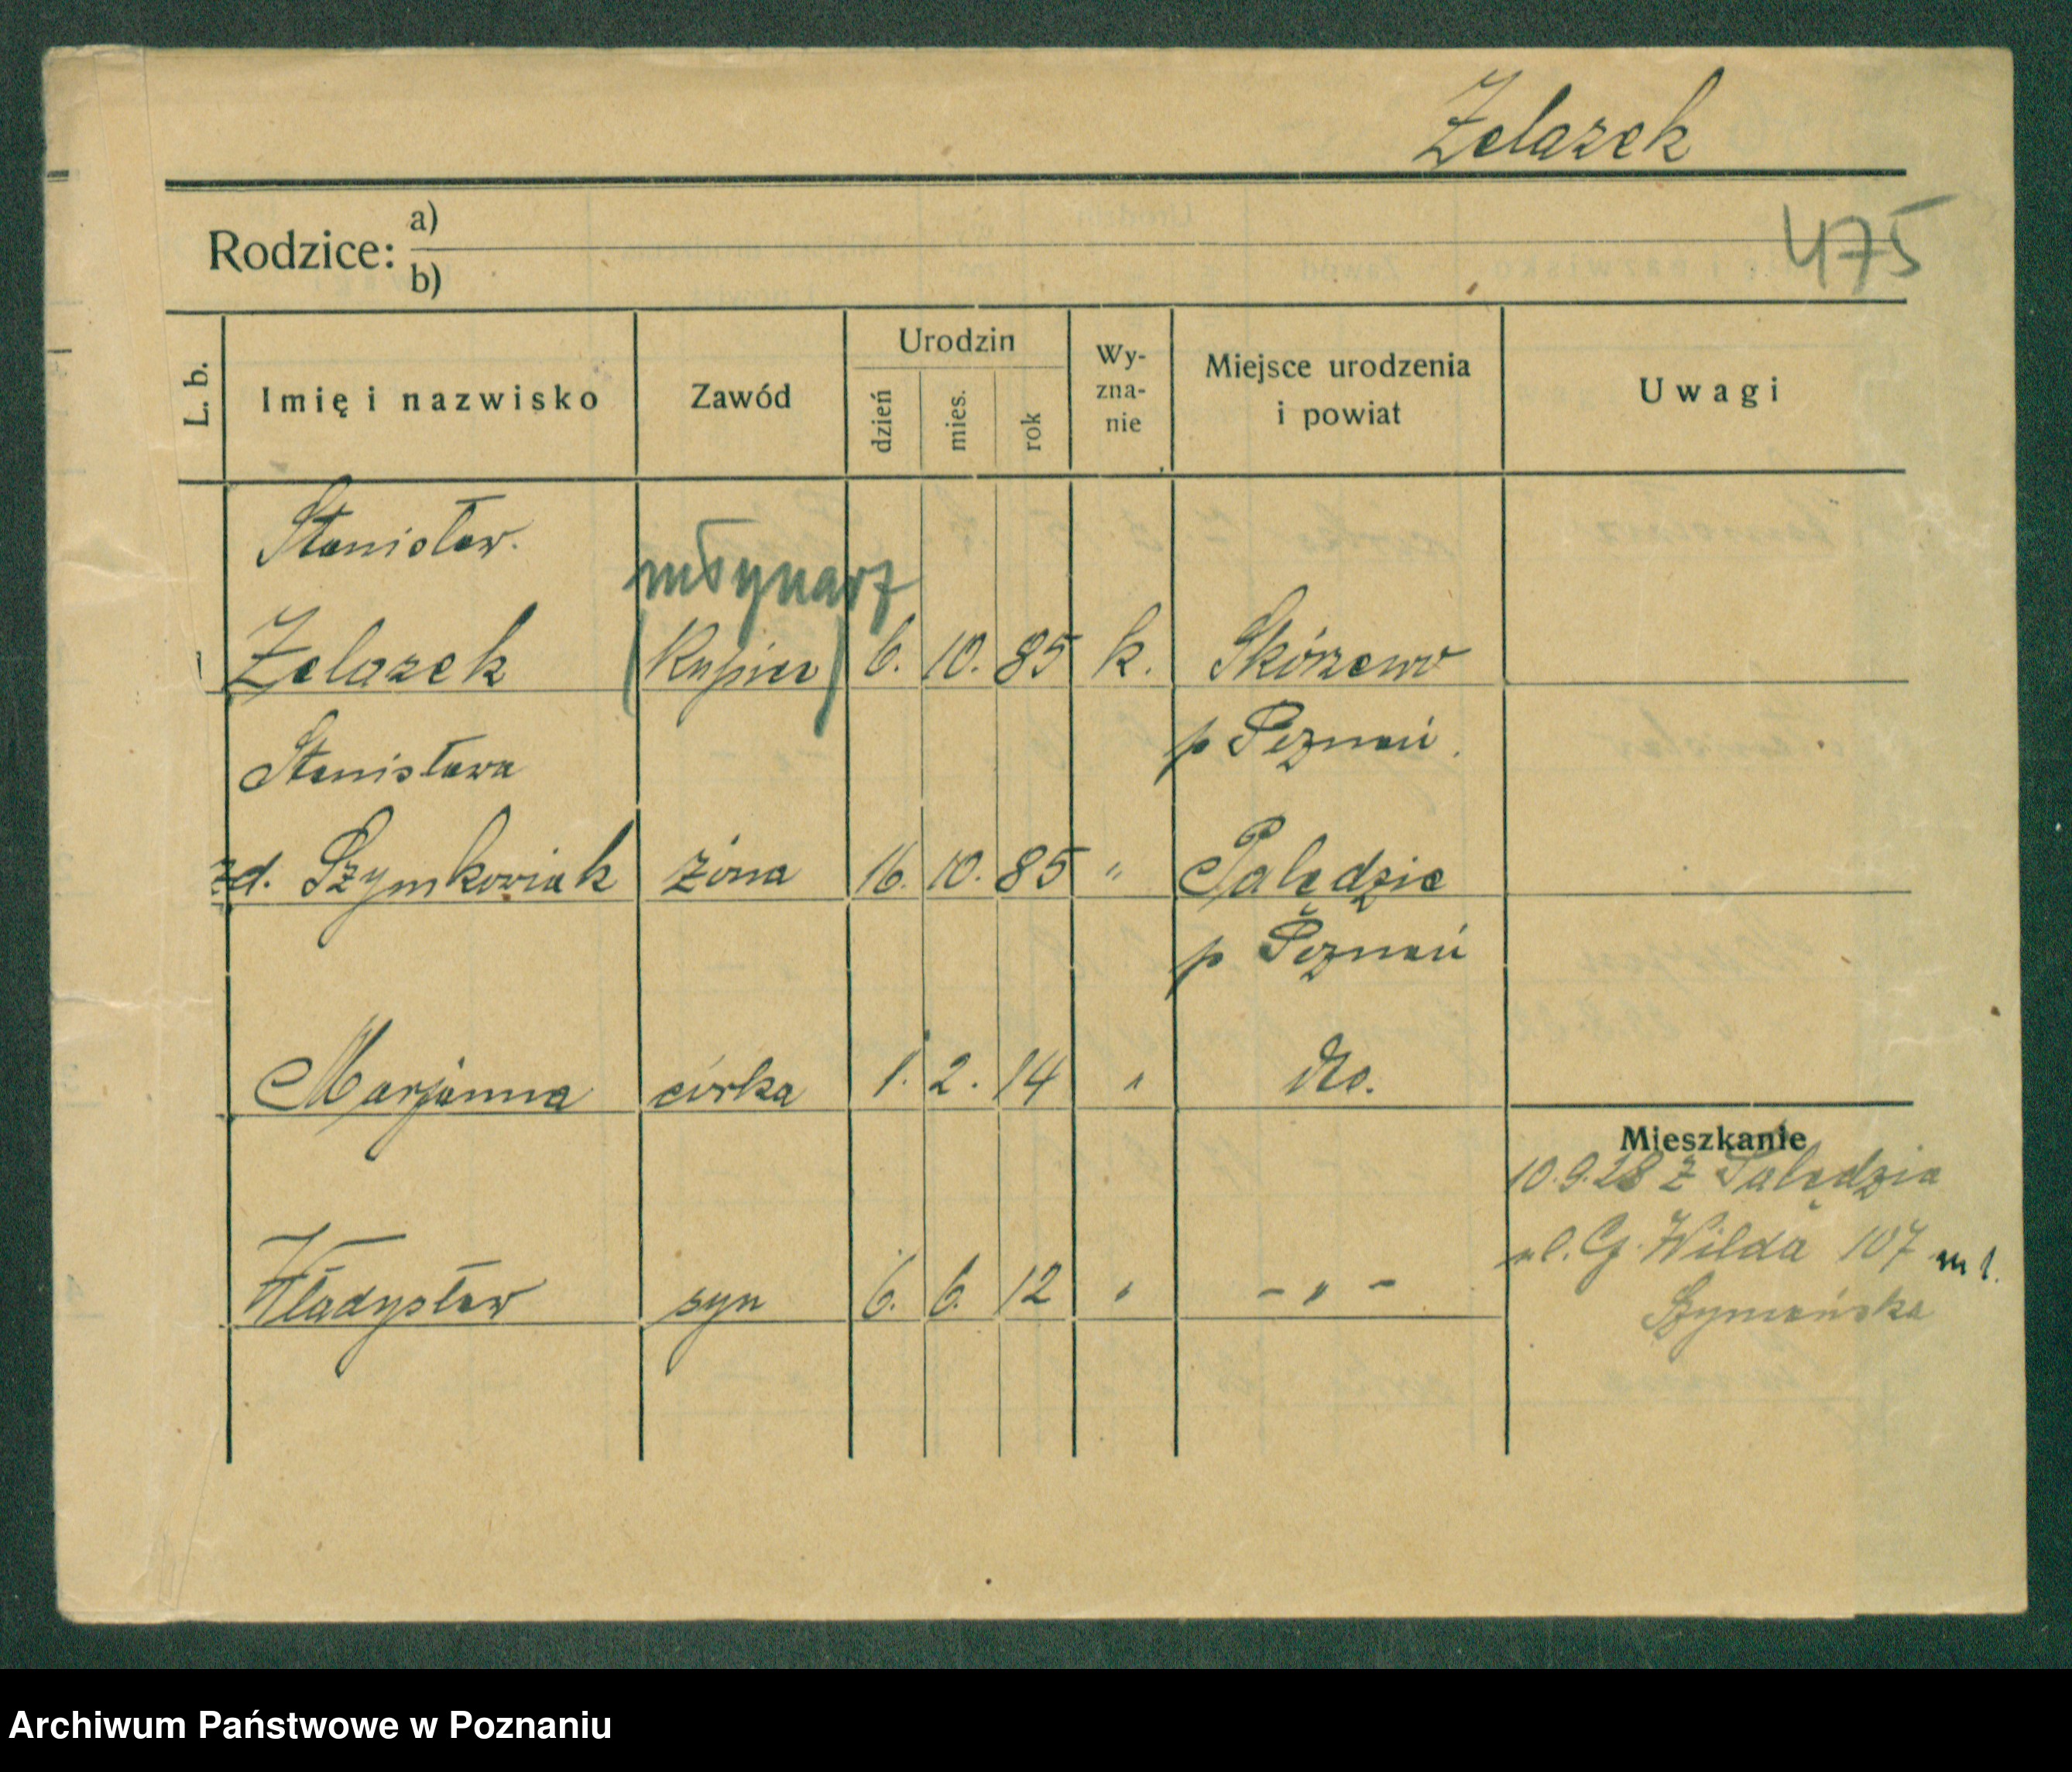 Żelazek
Rodzice: a)
b)
475
L. b.
Imię i nazwisko
Zawód
Urodzin
dzień
mies.
rok
Wy-
zna-
nie
Miejsce urodzenia
i powiat
Uwagi
Stanisław.
młynarz
Żelazek (kupiec) 6. 10. 85 k. Skórzewo
p Poznań.
Stanisława
zd. Szymkowiak żona 16. 10. 85 " Palędzie
p Poznań
Marjanna córka 1. 2. 14 " dto.
Władysław syn 6. 6. 12 " - " -
Mieszkanie
10.9.28 z Palędzia
ul. G. Wilda 107 m 1.
Szymańska
Archiwum Państwowe w Poznaniu